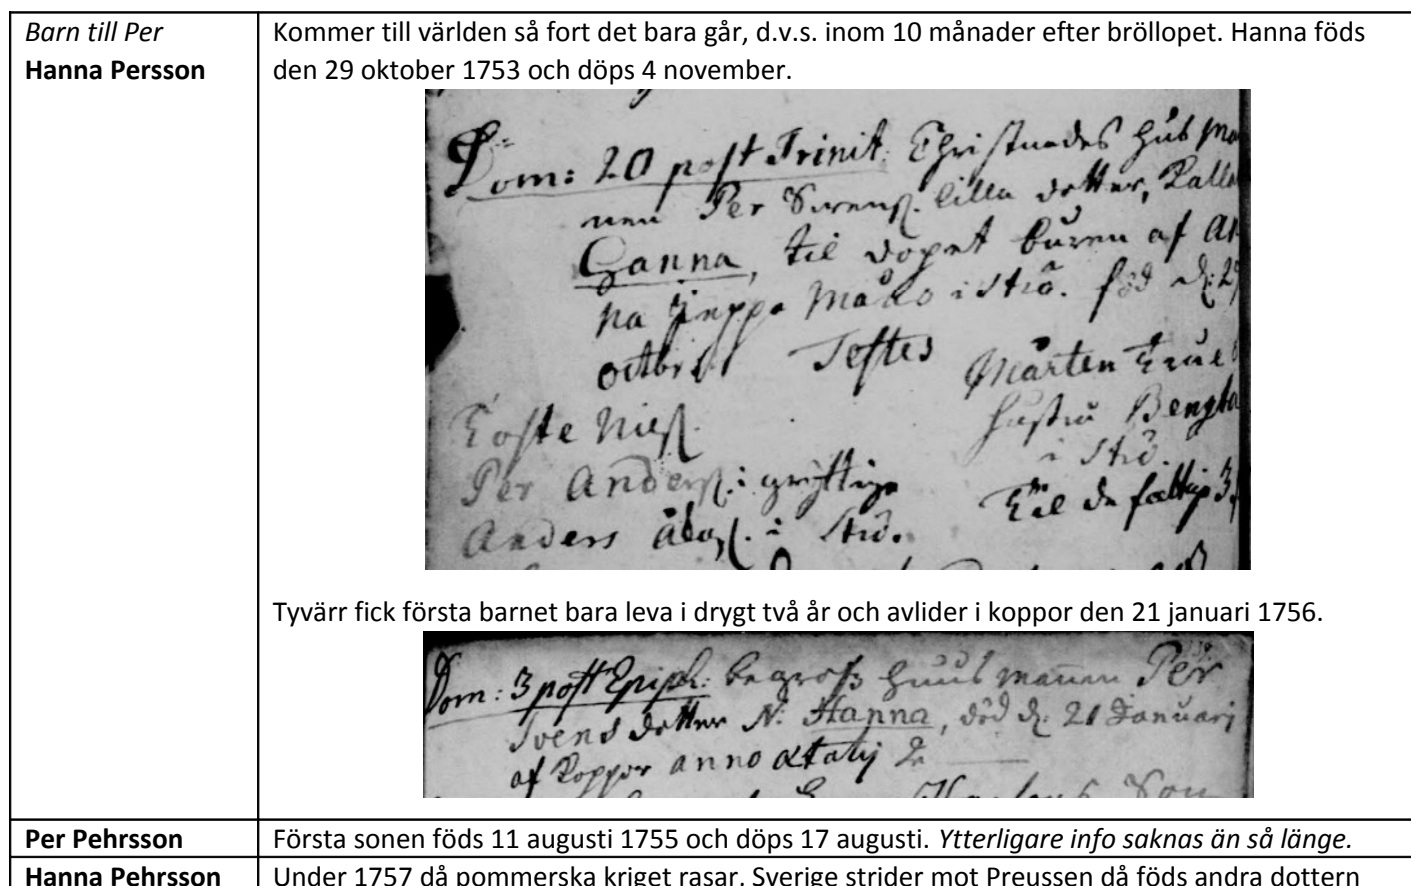 Barn till Per
Hanna Persson
Kommer till världen så fort det bara går, d.v.s. inom 10 månader efter bröllopet. Hanna föds
den 29 oktober 1753 och döps 4 november.
Dom: 20 post Trinit. Christnades huus ma
nen Per Svens. lilla dotter, kalla
Hanna, til dopet buren af An
na Jeppa Måns i Strö. född d: 29
octbr. Testes Mårten Truel
Toste Niels. hustru Bengta
i Strö.
Per Anders. i Til de fattiga 3
Anders i Strö.
Tyvärr fick första barnet bara leva i drygt två år och avlider i koppor den 21 januari 1756.
Dom: 3 post Epiph: begrofs huus mannen Per
Svens dotter N: Hanna, död d: 21 Januarij
af koppor anno ætatis 2
Per Pehrsson
Första sonen föds 11 augusti 1755 och döps 17 augusti. Ytterligare info saknas än så länge.
Hanna Pehrsson
Under 1757 då pommerska kriget rasar. Sverige strider mot Preussen då föds andra dottern